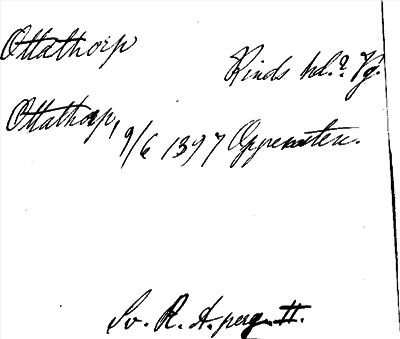 Ottathorp
Kinds hd.? Vg.
Ottathorp, 9/6 1397 Oppensten.
Sv. R. A. perg. tt.